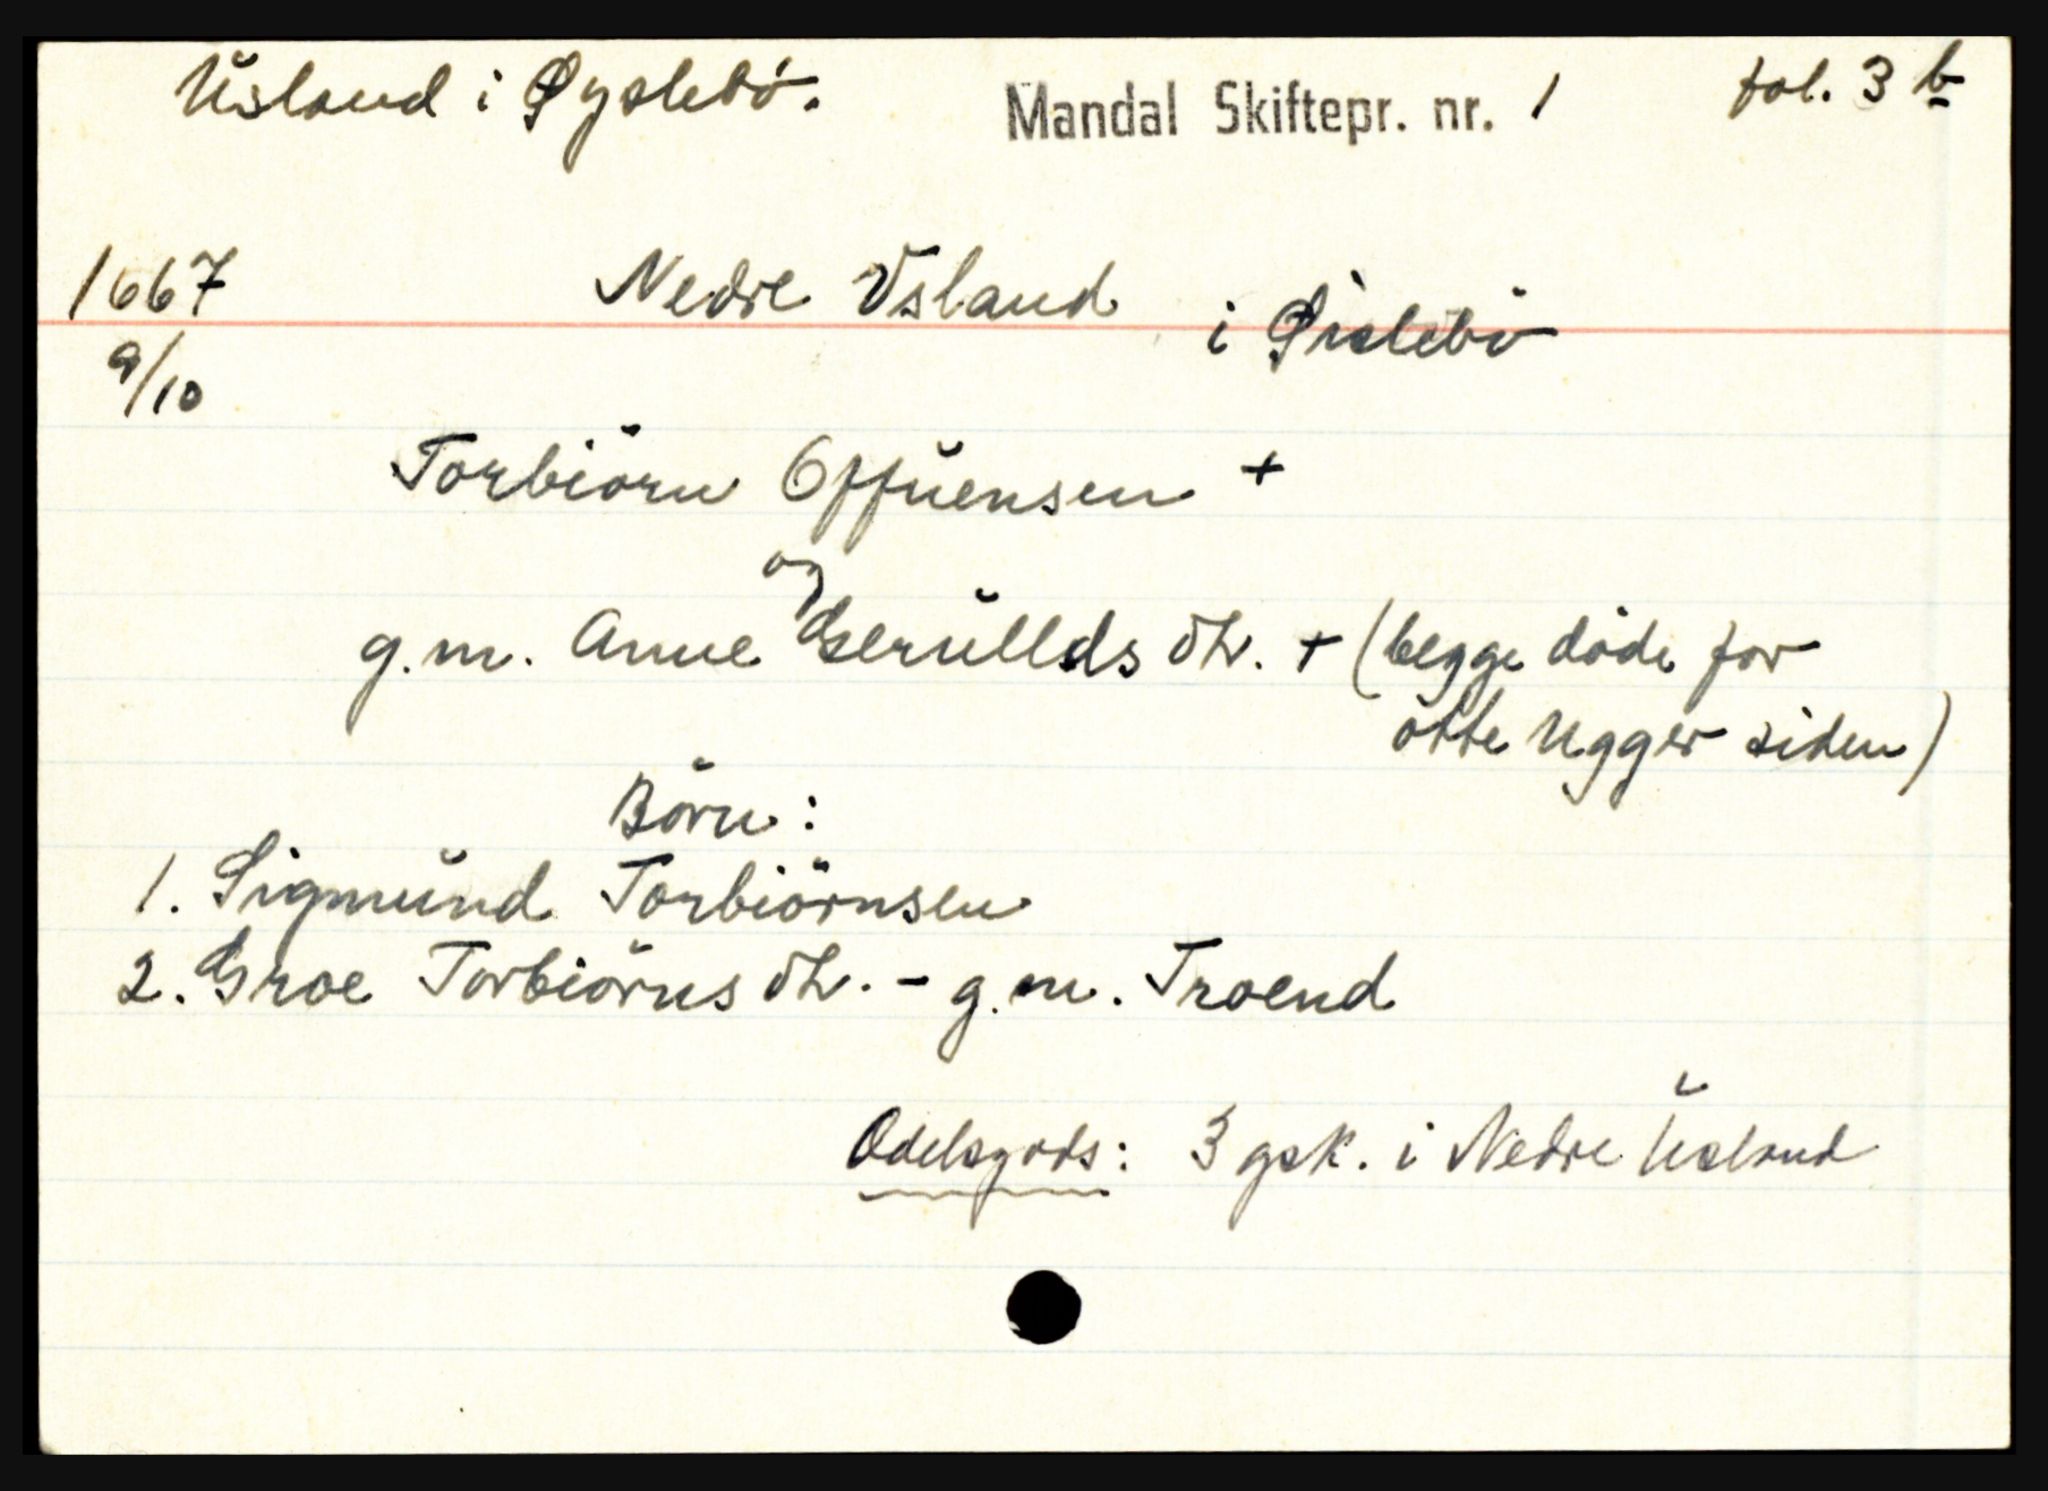 Usland i Øyslebö. Mandal Skiftepr. nr. 1 fol. 3 b
1667 Nedre Vsland i Øislebö
9/10
Torbiörn Offuensen +
og
g.m. Anne Gerulllds dtr. + (begge döde for
otte Ugger siden)
Börn:
1. Sigmund Torbiörnsen
2. Groe Torbiörns dtr. - g.m. Troend
Odelsgods: 3 gsk. i Nedre Usland